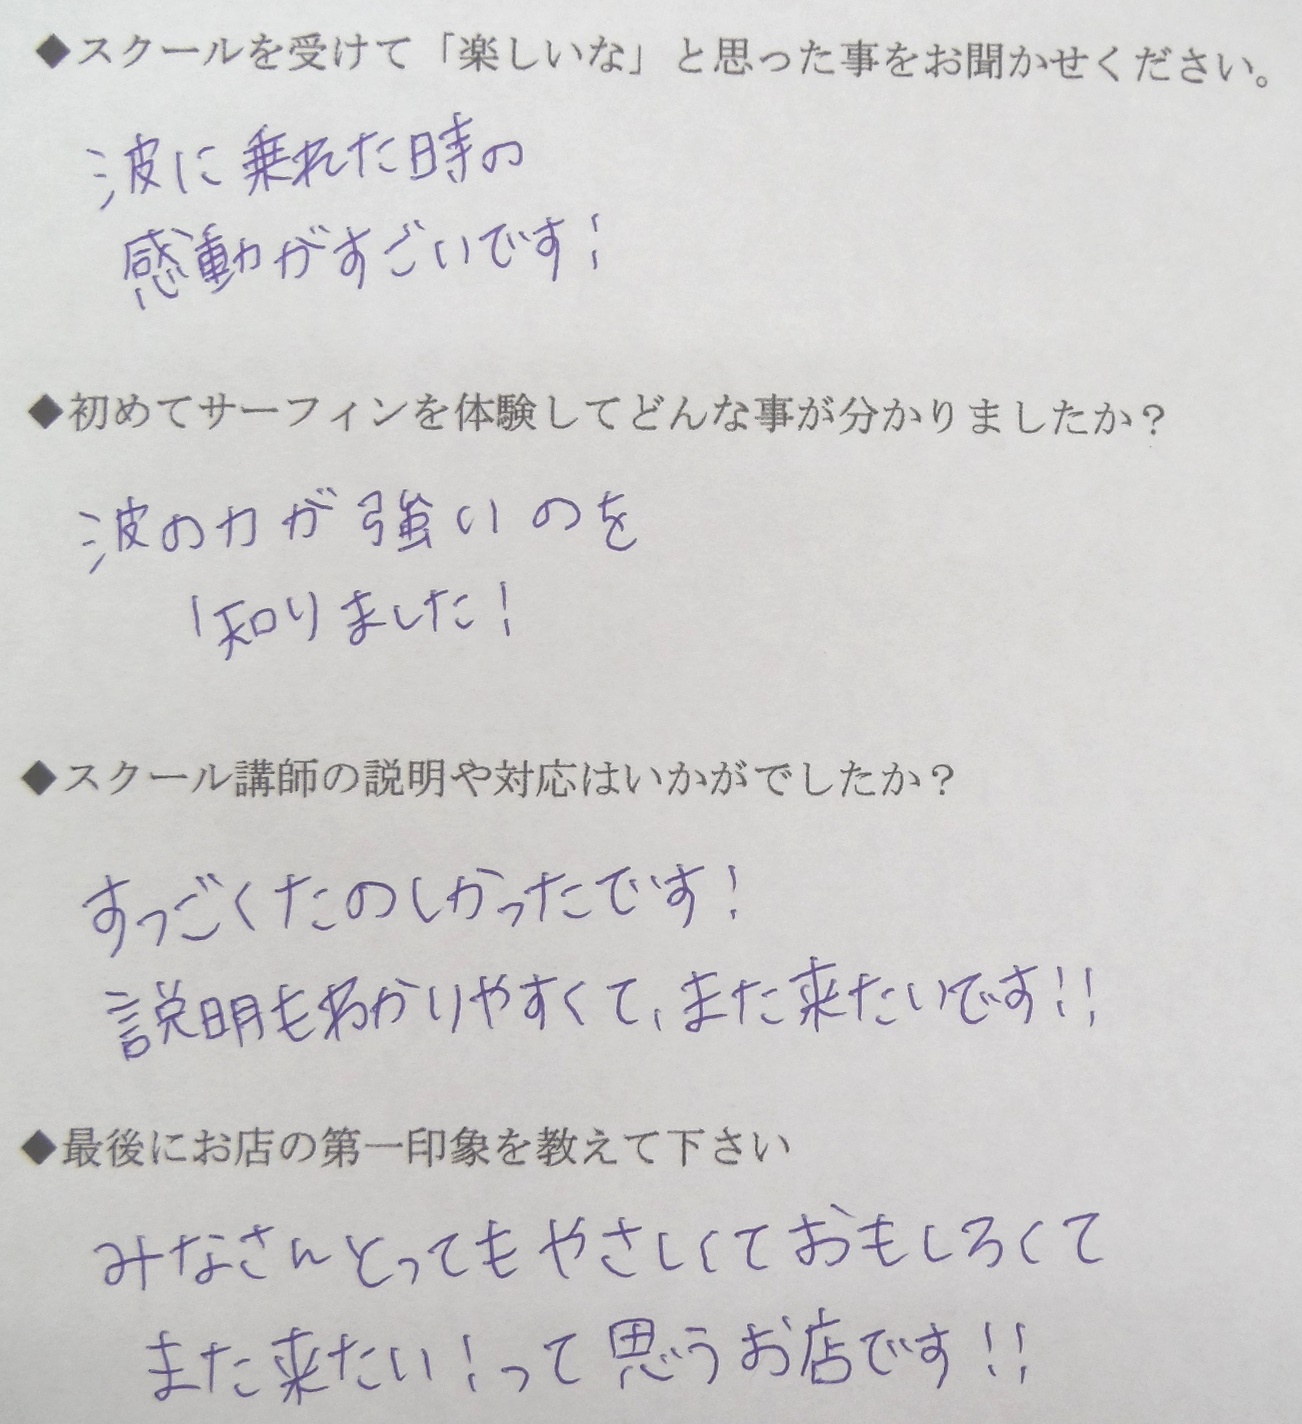 ◆スクールを受けて「楽しいな」と思った事をお聞かせください。
波に乗れた時の
感動がすごいです!
◆初めてサーフィンを体験してどんな事が分かりましたか？
波の力が強いのを
知りました!
◆スクール講師の説明や対応はいかがでしたか？
すっごくたのしかったです!
説明もわかりやすくて、また来たいです!!
◆最後にお店の第一印象を教えて下さい
みなさんとってもやさしくておもしろくて
また来たい!って思うお店です!!